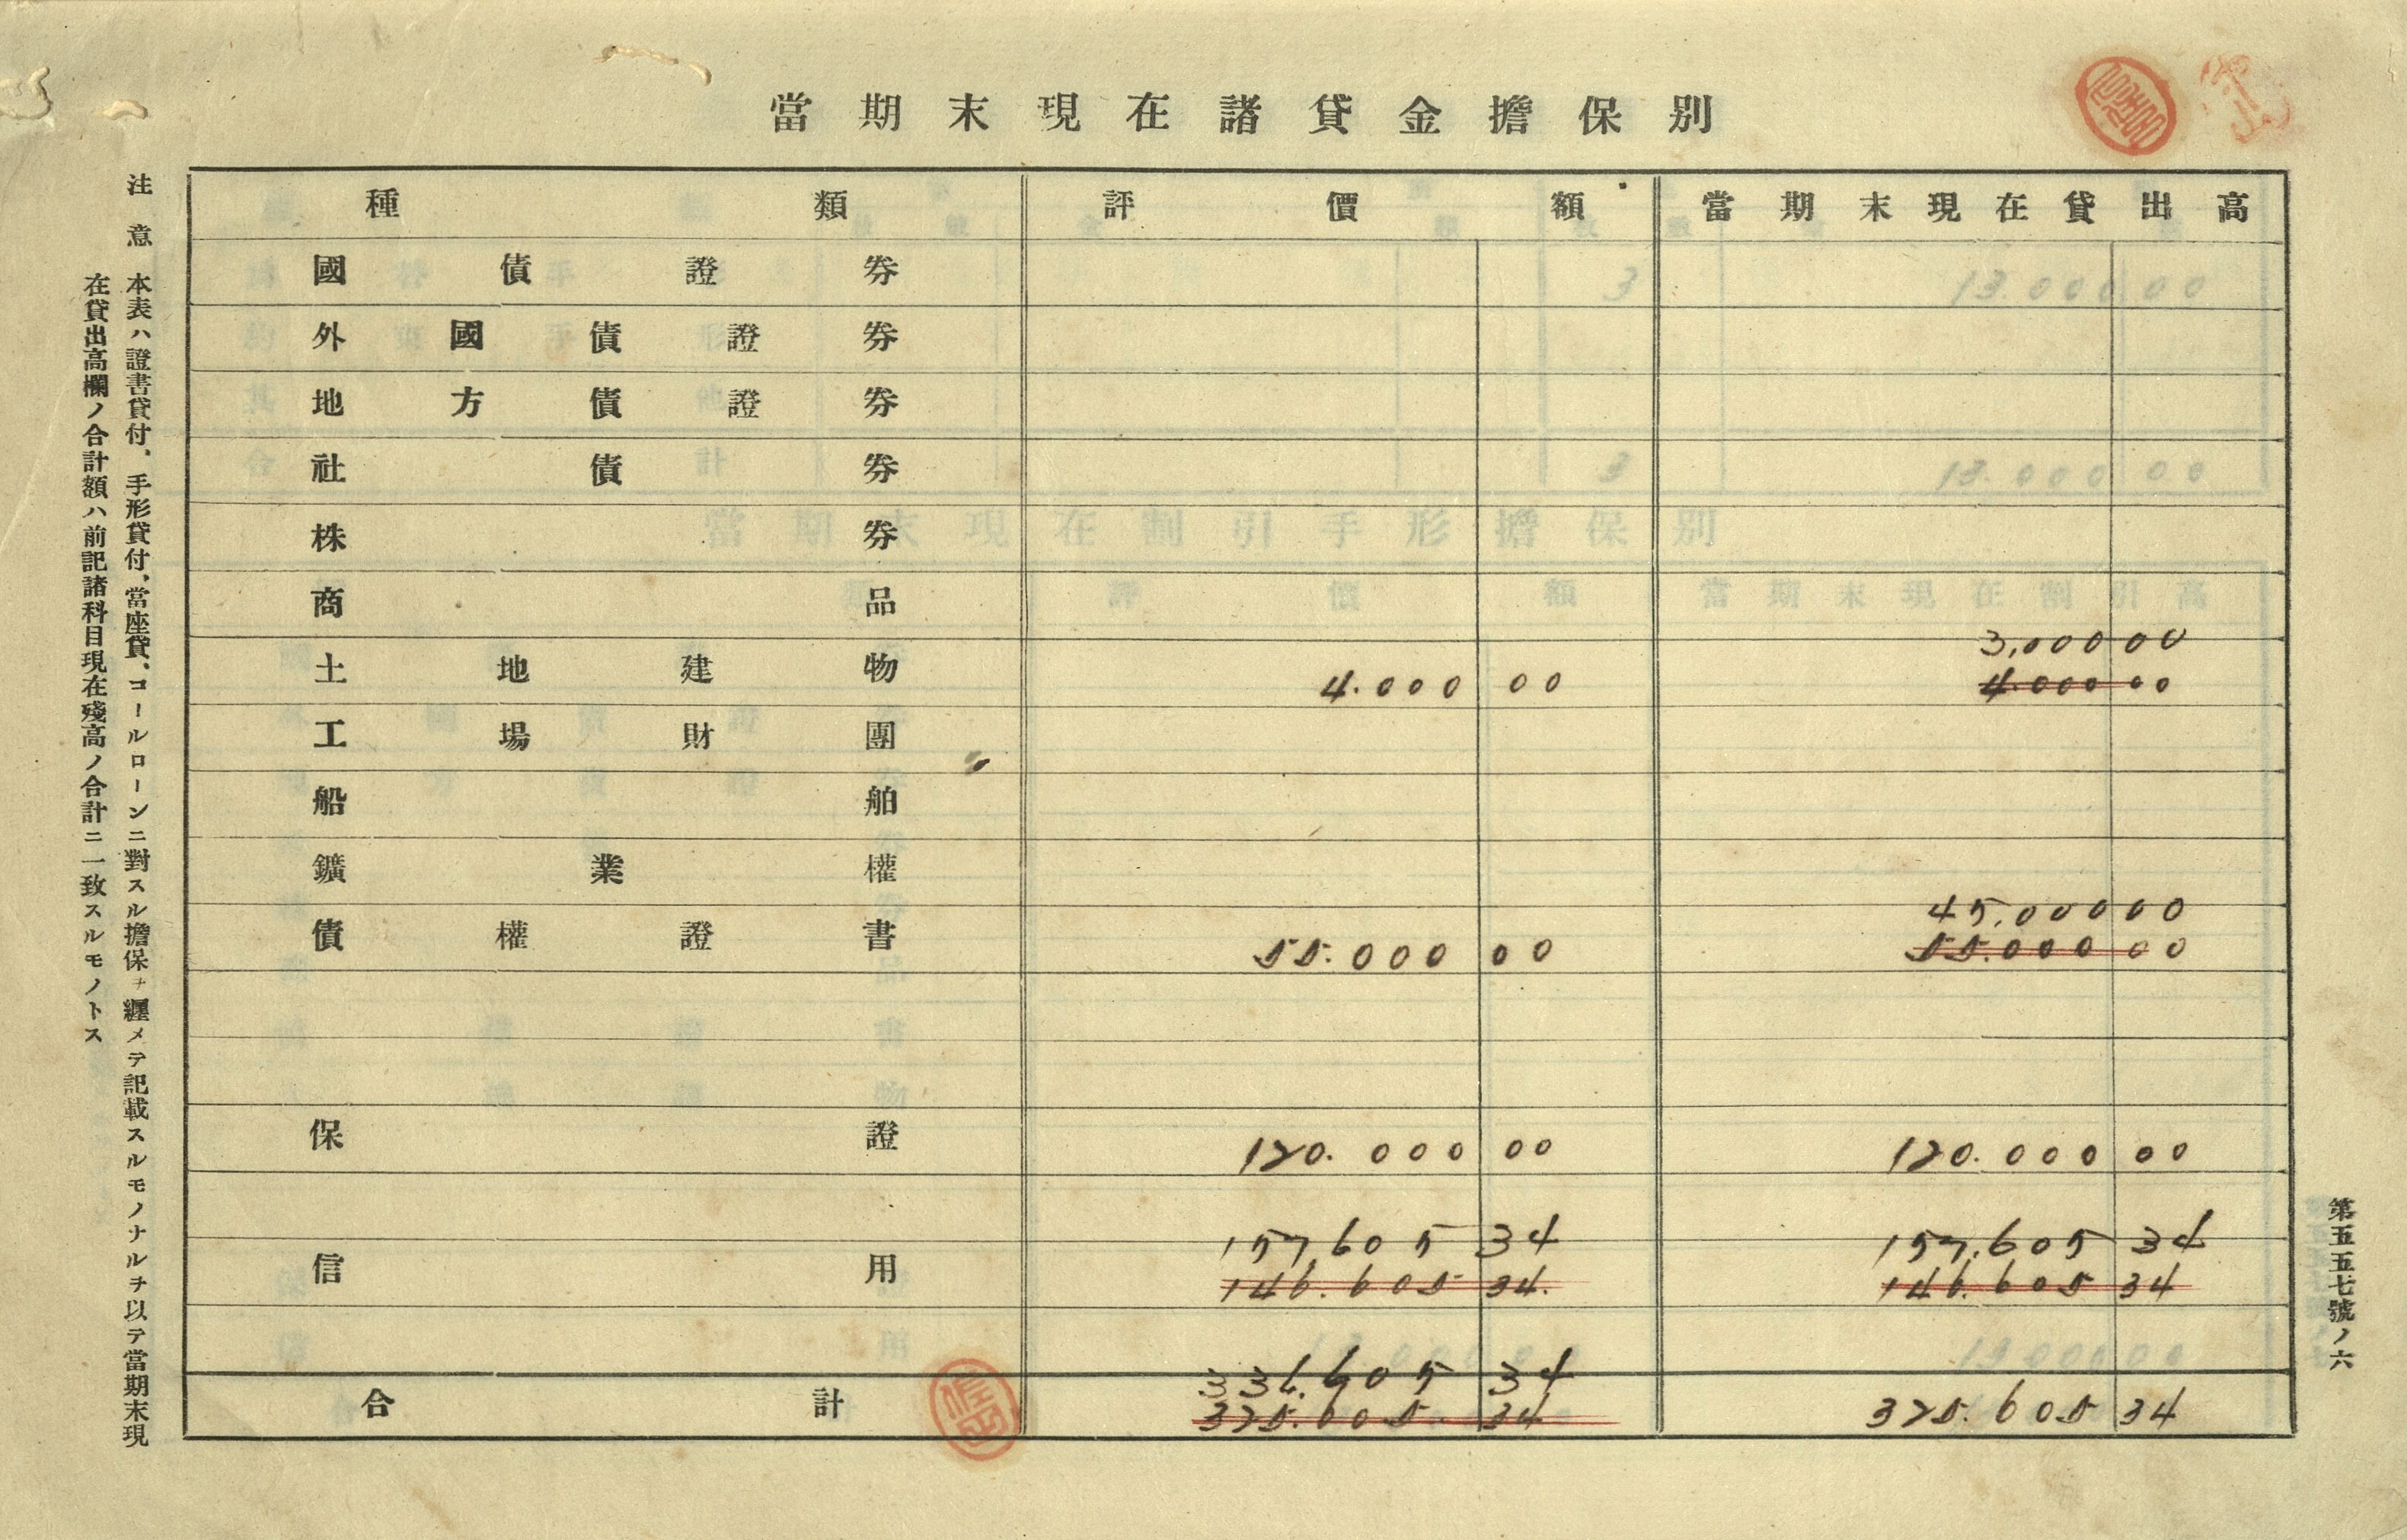 當期末現在諸貸金擔保別
種類 評價額 當期末現在貸出高
國債證券
外國債證券
地方債證券
社債券
株券
商品
3,000 00
土地建物 4.000 00 4.000 00
工場財團
船舶
鑛業權
45,000 00
債權證書 55.000 00 55.000 00
保證 120.000 00 120.000 00
157,605 34 157,605 34
信用 146.605 34. 146.605 34
336.605 34
合計 325.605. 34 325.605 34
注意 本表ハ證書貸付、手形貸付、當座貸、コールローンニ對スル擔保ヲ纒メテ記載スルモノナルヲ以テ當期末現
在貸出高欄ノ合計額ハ前記諸科目現在殘高ノ合計ニ一致スルモノトス
第五五七號ノ六